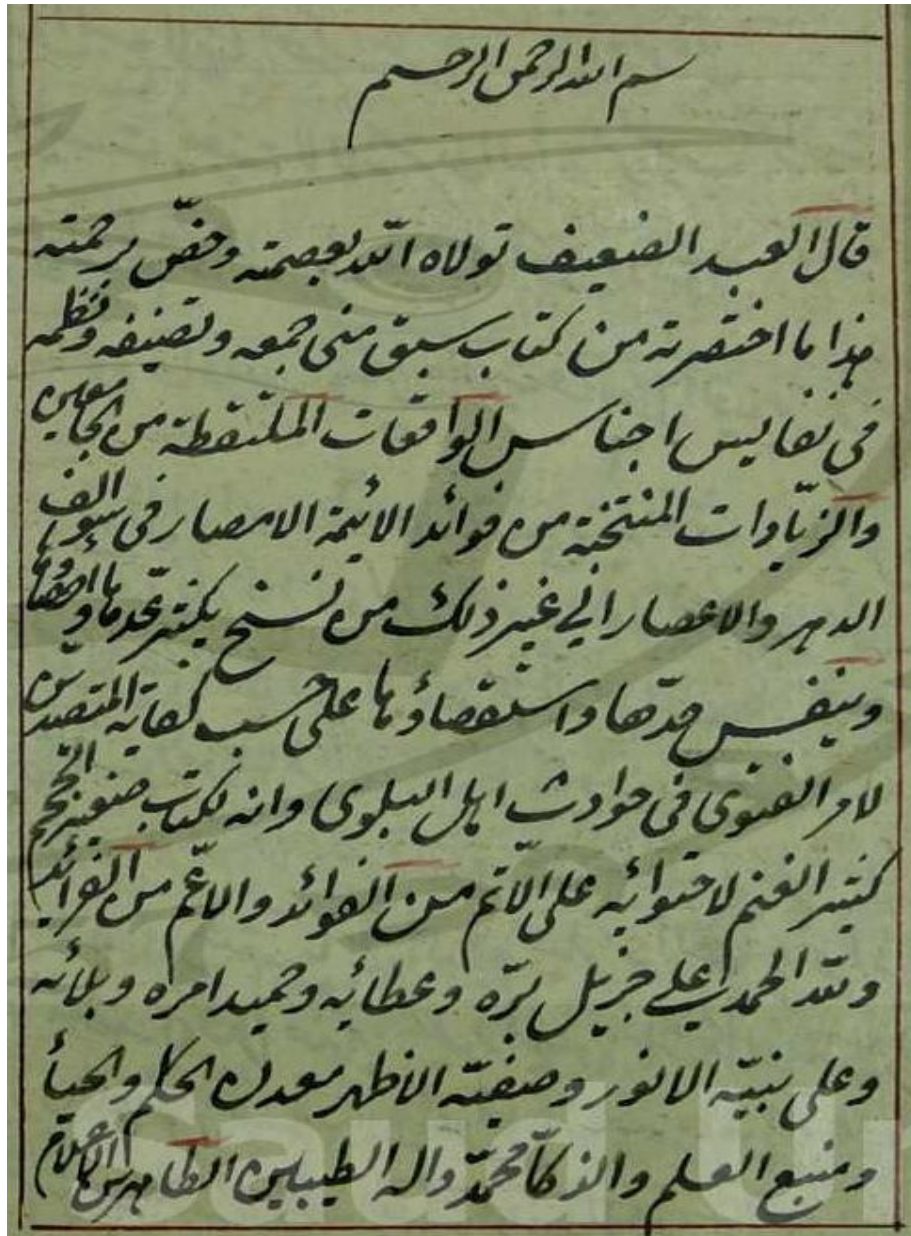 بسم الله الرحمن الرحيم
قال العبد الضعيف تولاه الله بعصمته وخصّ برحمته
هذا ما اختصرته من كتاب سبق منى جمعه وتصنيفه ونظمه
فى نفايس اجناس الواقعات الملتقطة من الجامعين
والزيّادات المنتخبة من فوائد الائيمة الامصار فى سوالف
الدهر والاعصار الي غير ذلك من نسخ يكثر عدّها واحصاؤها
وينفس حدّها واستقصاؤها على حسب كفاية المتصدين
لامر الفتوى فى حوادث اهل البلوى وانه لكتاب صغير الحجم
كثير الغنم لاحتوائه على الاتم من الفوائد والاعّم من الفرائد
ولله الحمد على جزيل برّه وعطائه وحميد امره وبلائه
وعلى نبيّه الانور وصفيّه الاظهر معدن الحلم والحيأ
ومنبع العلم والذكاّ محمّد واله الطيبين الطاهرين الاعلام
Saud U